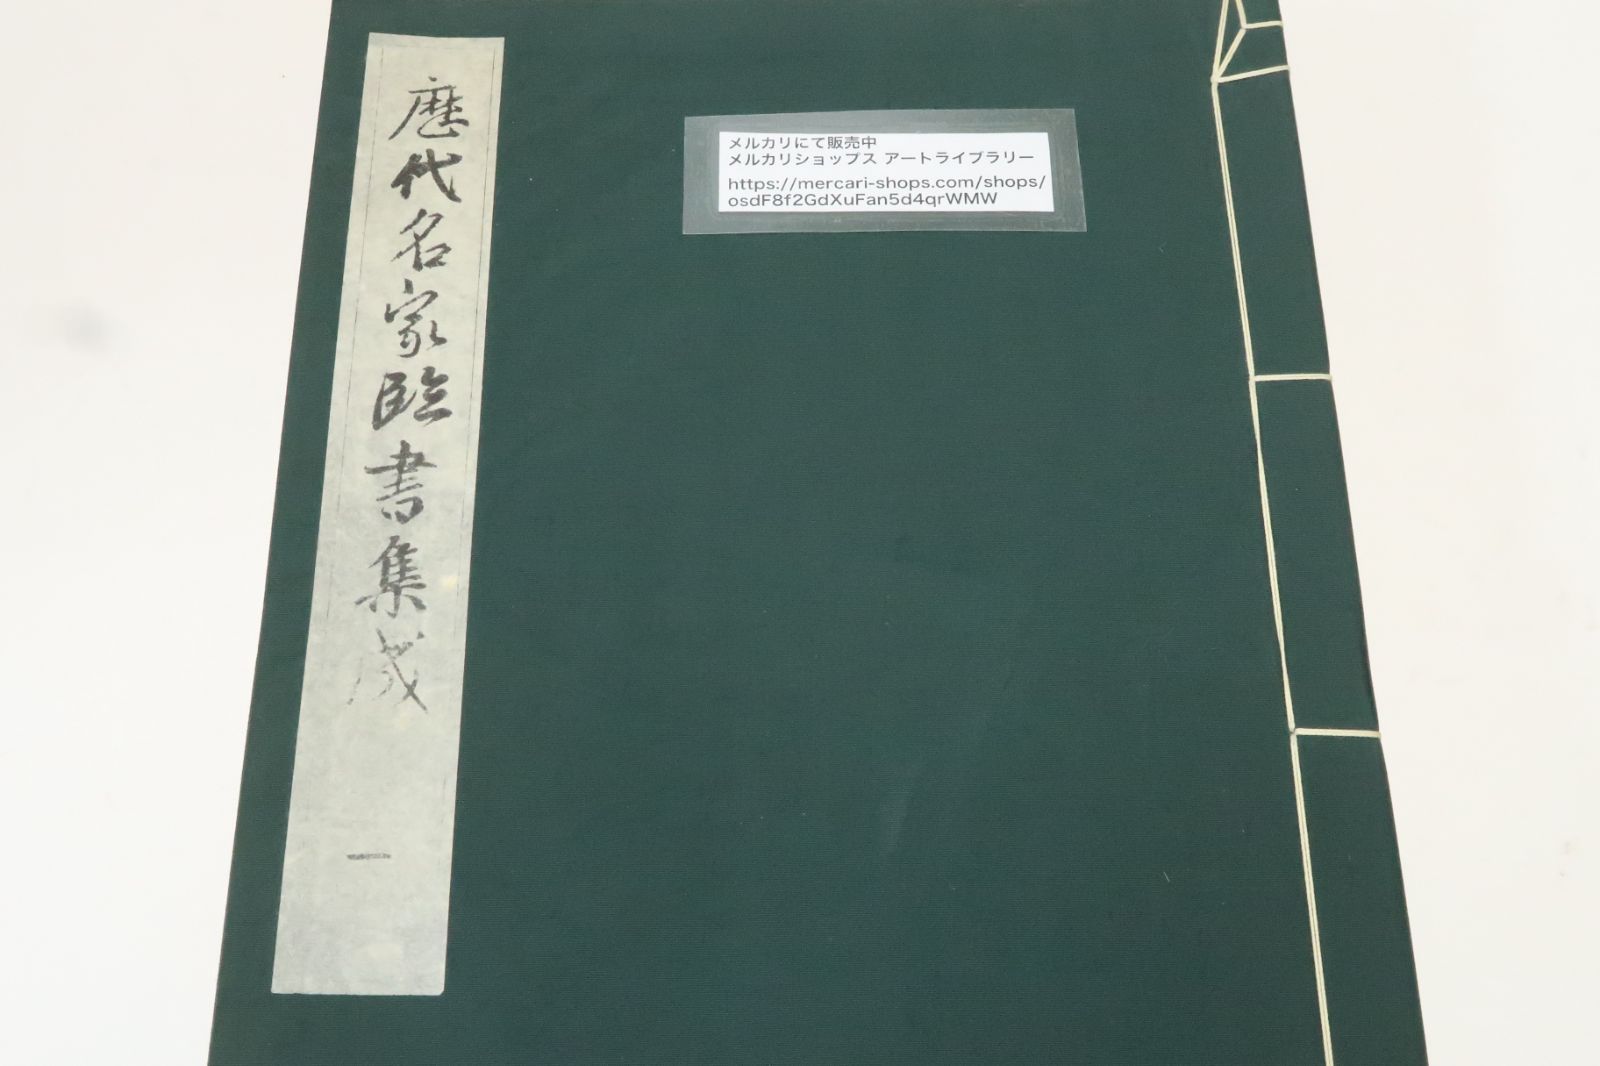 歴代名家臨書集成
一
メルカリにて販売中
メルカリショップス アートライブラリー
https://mercari-shops.com/shops/
osdF8f2GdXuFan5d4qrWMW